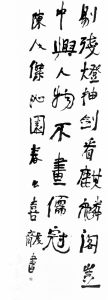 剔殘燈抽劍看麒麟閣豈
中興人物不畫儒冠
陳人傑沁園春喜書